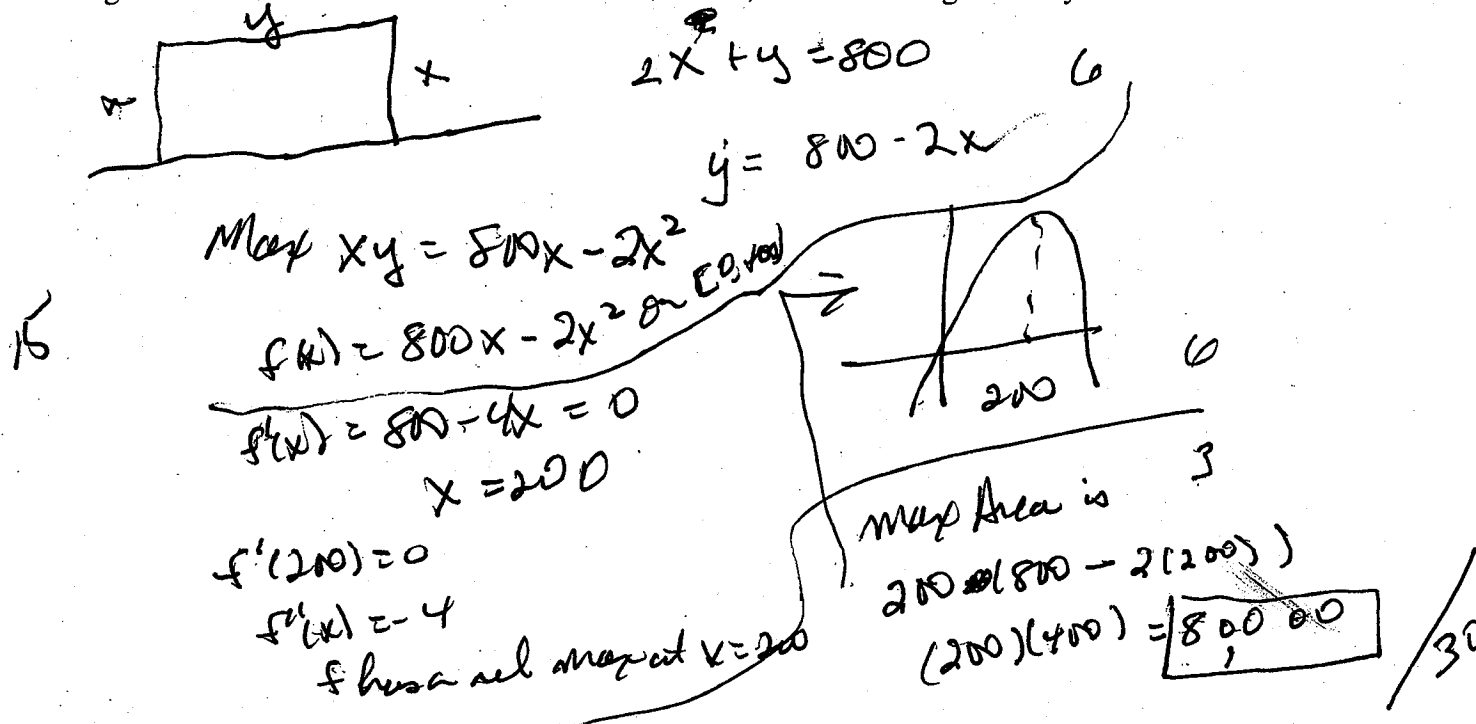 y
x
x
2x + y = 800
6
y = 800 - 2x
Max xy = 800x - 2x²
15
f(x) = 800x - 2x² on [0, 400]
f'(x) = 800 - 4x = 0
x = 200
f'(200) = 0
f''(x) = -4
f has a rel max at x = 200
200
6
3
max Area is
200(800 - 2(200))
(200)(400) = 80,000